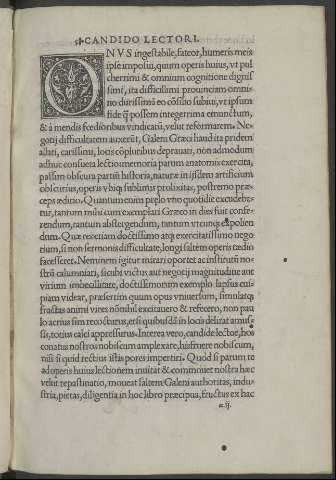 CANDIDO LECTORI.
ONVS ingestabile, fateor, humeris meis
ipse imposui, quum operis huius, vt pul
cherrimi & omnium cognitione dignis
simi, ita difficillimi prouinciam omni-
no durissimā eo cōsilio subiui, vt ipsum
fide q possem integerrima emunctum,
& à mendis fœdioribus vindicatū, velut reformarem. Ne-
gotij difficultatem auxerūt, Galeni Græci haud ita pridem
allati, carissimi, locis cōpluribus deprauati, non admodum
adhuc consueta lectio: memoria parum anatomis exercita,
passim obscura partiū historia, naturæ in ijsdem artificium
obscurius, operis vbiq; sublimis prolixitas, postremo præ-
ceps æditio. Quantum enim prælo vno quotidie excudeba-
tur, tantum mihi cum exemplari Græco in dies fuit confe-
rendum, tantum abstergendum, tantum vtrunq; expolien
dum. Quæ res etiam doctissimo atq; exercitatissimo nego
tium, si non sermonis difficultate, longi saltem operis tædio
facesseret. Neminem igitur mirari oportet ac institutū no-
strū calumniari, sicubi victus aut negotij magnitudine aut
virium imbecillitate, doctissimorum exemplo lapsus cui-
piam videar, præsertim quum opus vniuersum, simulatq;
fractas animi vires nōnihil excitauero & refecero, non pau
lo acrius sim recusurus, etsi quibusdā in locis delirat amus-
sis, totius calci appressurus. Interea vero, candide lector, hos
conatus nostros nobiscum amplexare, hisfruere nobiscum,
nisi si quid rectius istis pores impertiri. Quod si parum te
ad operis huius lectionem inuitat & commouet nostra hæc
velut repastinatio, moueat saltem Galeni authoritas, indu-
stria, pietas, diligentia in hoc libro præcipua, fructus ex hac
a.ij.